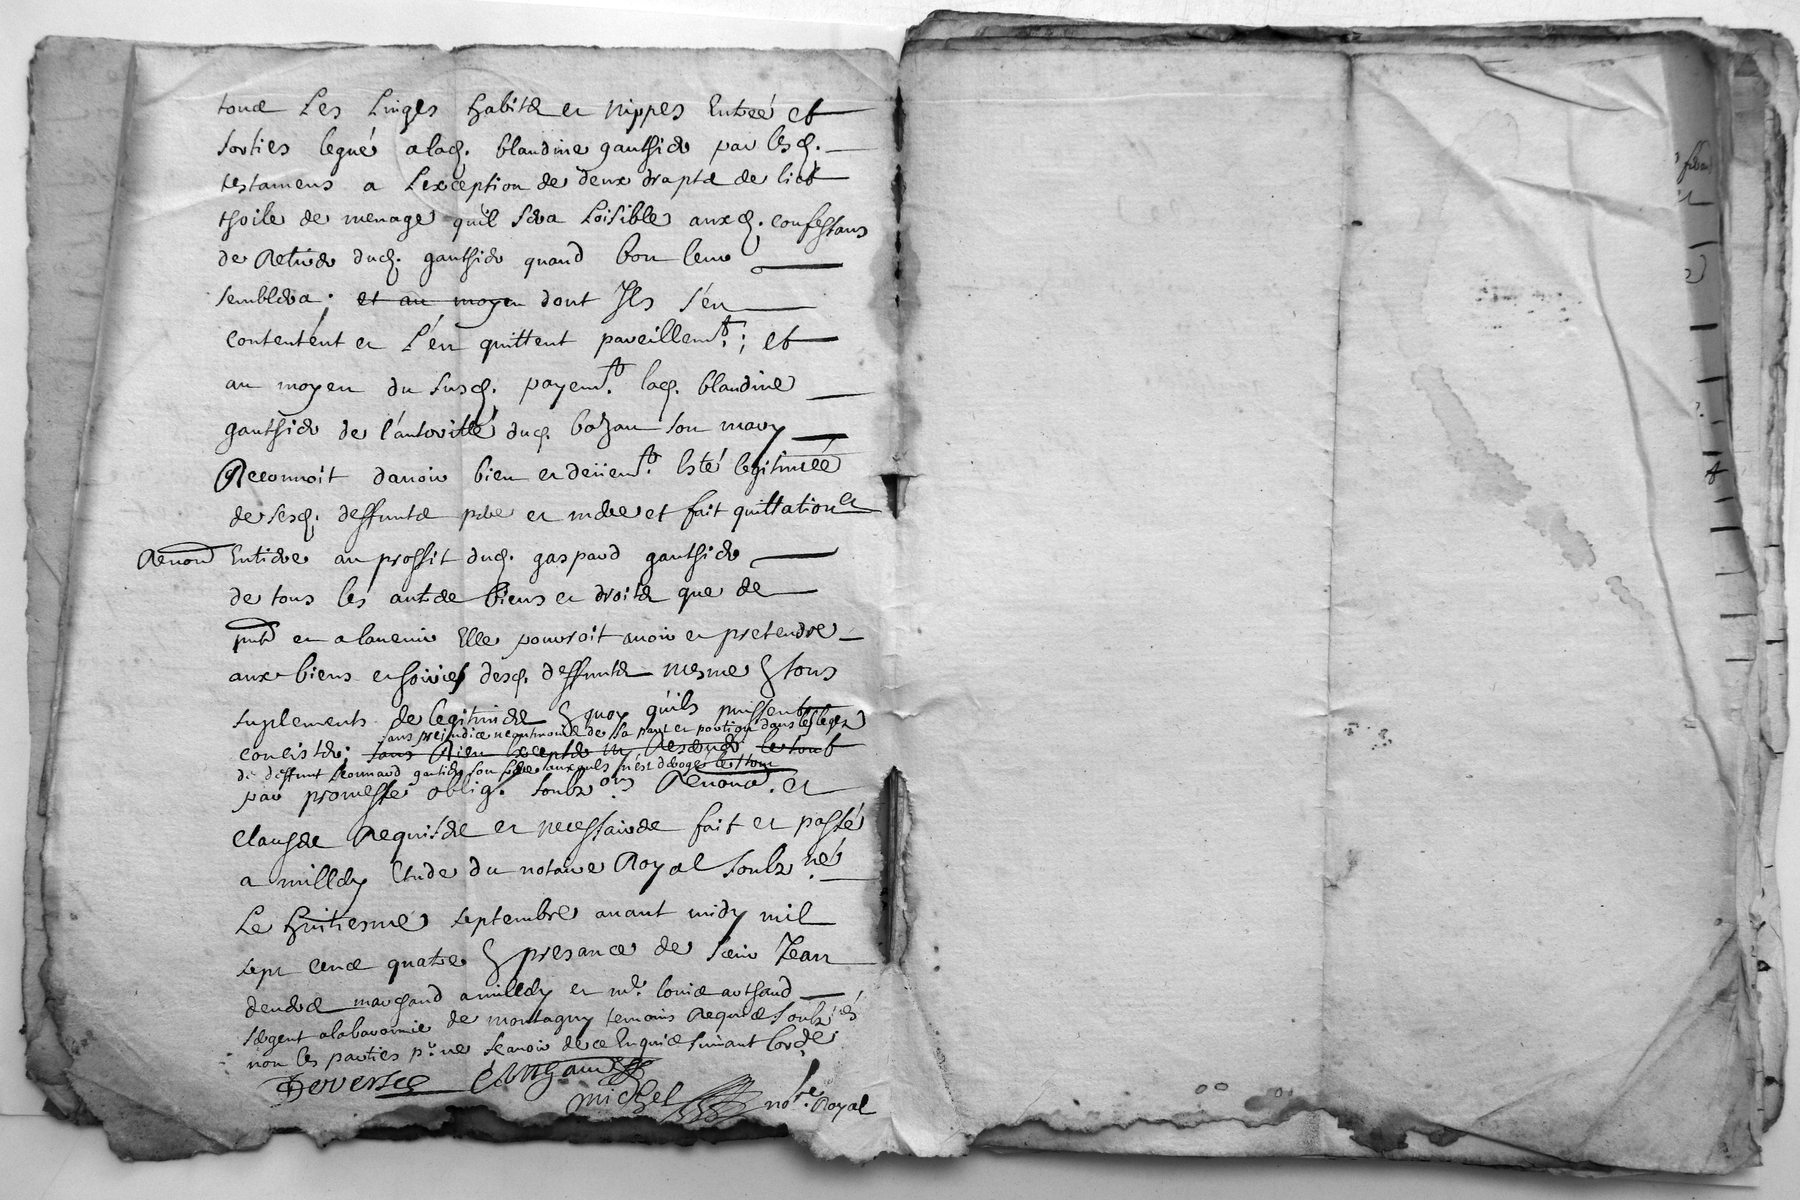 tous Les Linges habits et nippes Entree et
sorties legué a lad. blandine gauthier par lesd.
testamens a Lexception de deux draptz de lict
thoile de menage quil sera Loisible auxd. confessans
de Retirer dud. gauthier quand bon leur
semblera; et au moyen dont Ils s'en
contentent et L'en quittent pareillemt.; et
au moyen du susd. payemt. lad. blandine
gauthier de l'autoritté dud. son mary
Reconnoit davoir bien et deüemt. Esté legitimée
de sesd. deffuntz pere et mere et fait quittation et
Renon Entiere au proffit dud. gaspard gauthier
de tous les autres biens et droitz que de
pnt et a lavenir Elle pourroit avoir et pretendre
aux biens et hoiries desd. deffuntz mesme tous
suplements de legitimes quoy quils puissent
sans prejudice neantmoins de sa part et portion dans les legez
concister; sans Rien Excepter ny Reserver le tout
de deffunt Leonnard gautier son frere auxquels n'est deroger le tout
par promesse oblig. soubz.ons Renond. et
clauses Requises et necessaires fait et passé
a millery Etude du notaire Royal soubz.né
Le huitiesme septembre avant midy mil
sept cens quatre presance de sieur Jean
marchand a millery et me. louis arthaud
sergent a la baronnie de montagny temoins Requis soubz.nés
non les parties pr. ne scavoir de ce Enquis suivant lordre
michel nore. Royal